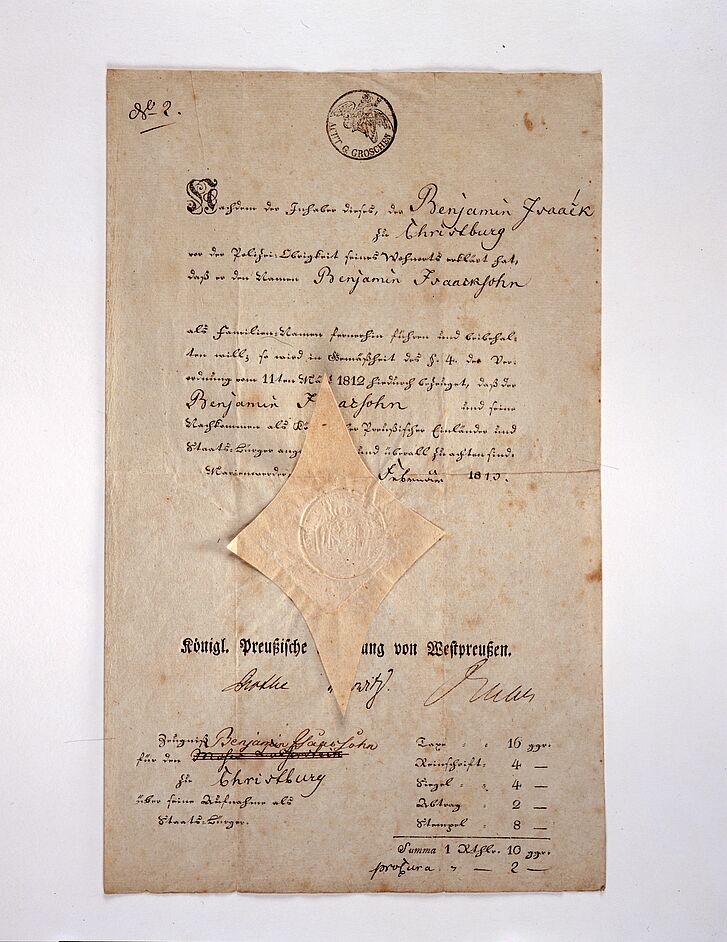 No 2.
ACHT G. GROSCHEN
Nachdem der Inhaber dieses, der Benjamin Isaack
zu Christburg
vor der Polizei-Obrigkeit seines Wohnorts erklärt hat,
daß er den Namen Benjamin Isaacksohn
als Familien-Namen fernerhin führen und beibehal-
ten will; so wird in Gemäßheit des §. 4. der Ver-
ordnung vom 11ten März 1812 hiedurch bezeuget, daß der
Benjamin und seine
Nachkommen als Preußischer Einländer und
Staats-Bürger und überall zu achten sind.
Marienwerder Februar
Königl. Preußische von Westpreußen.
Rothe
Zeugniß Benjamin Isaacksohn
für den
zu Christburg
über seine Aufnahme als
Staats-Bürger.
Taxe - - 16 ggr.
Reinschrift - 4 —
Siegel - - 4 —
Abtrag - 2 —
Stempel - 8 —
Summa 1 Rthlr. 10 ggr.
procura - — 2 —